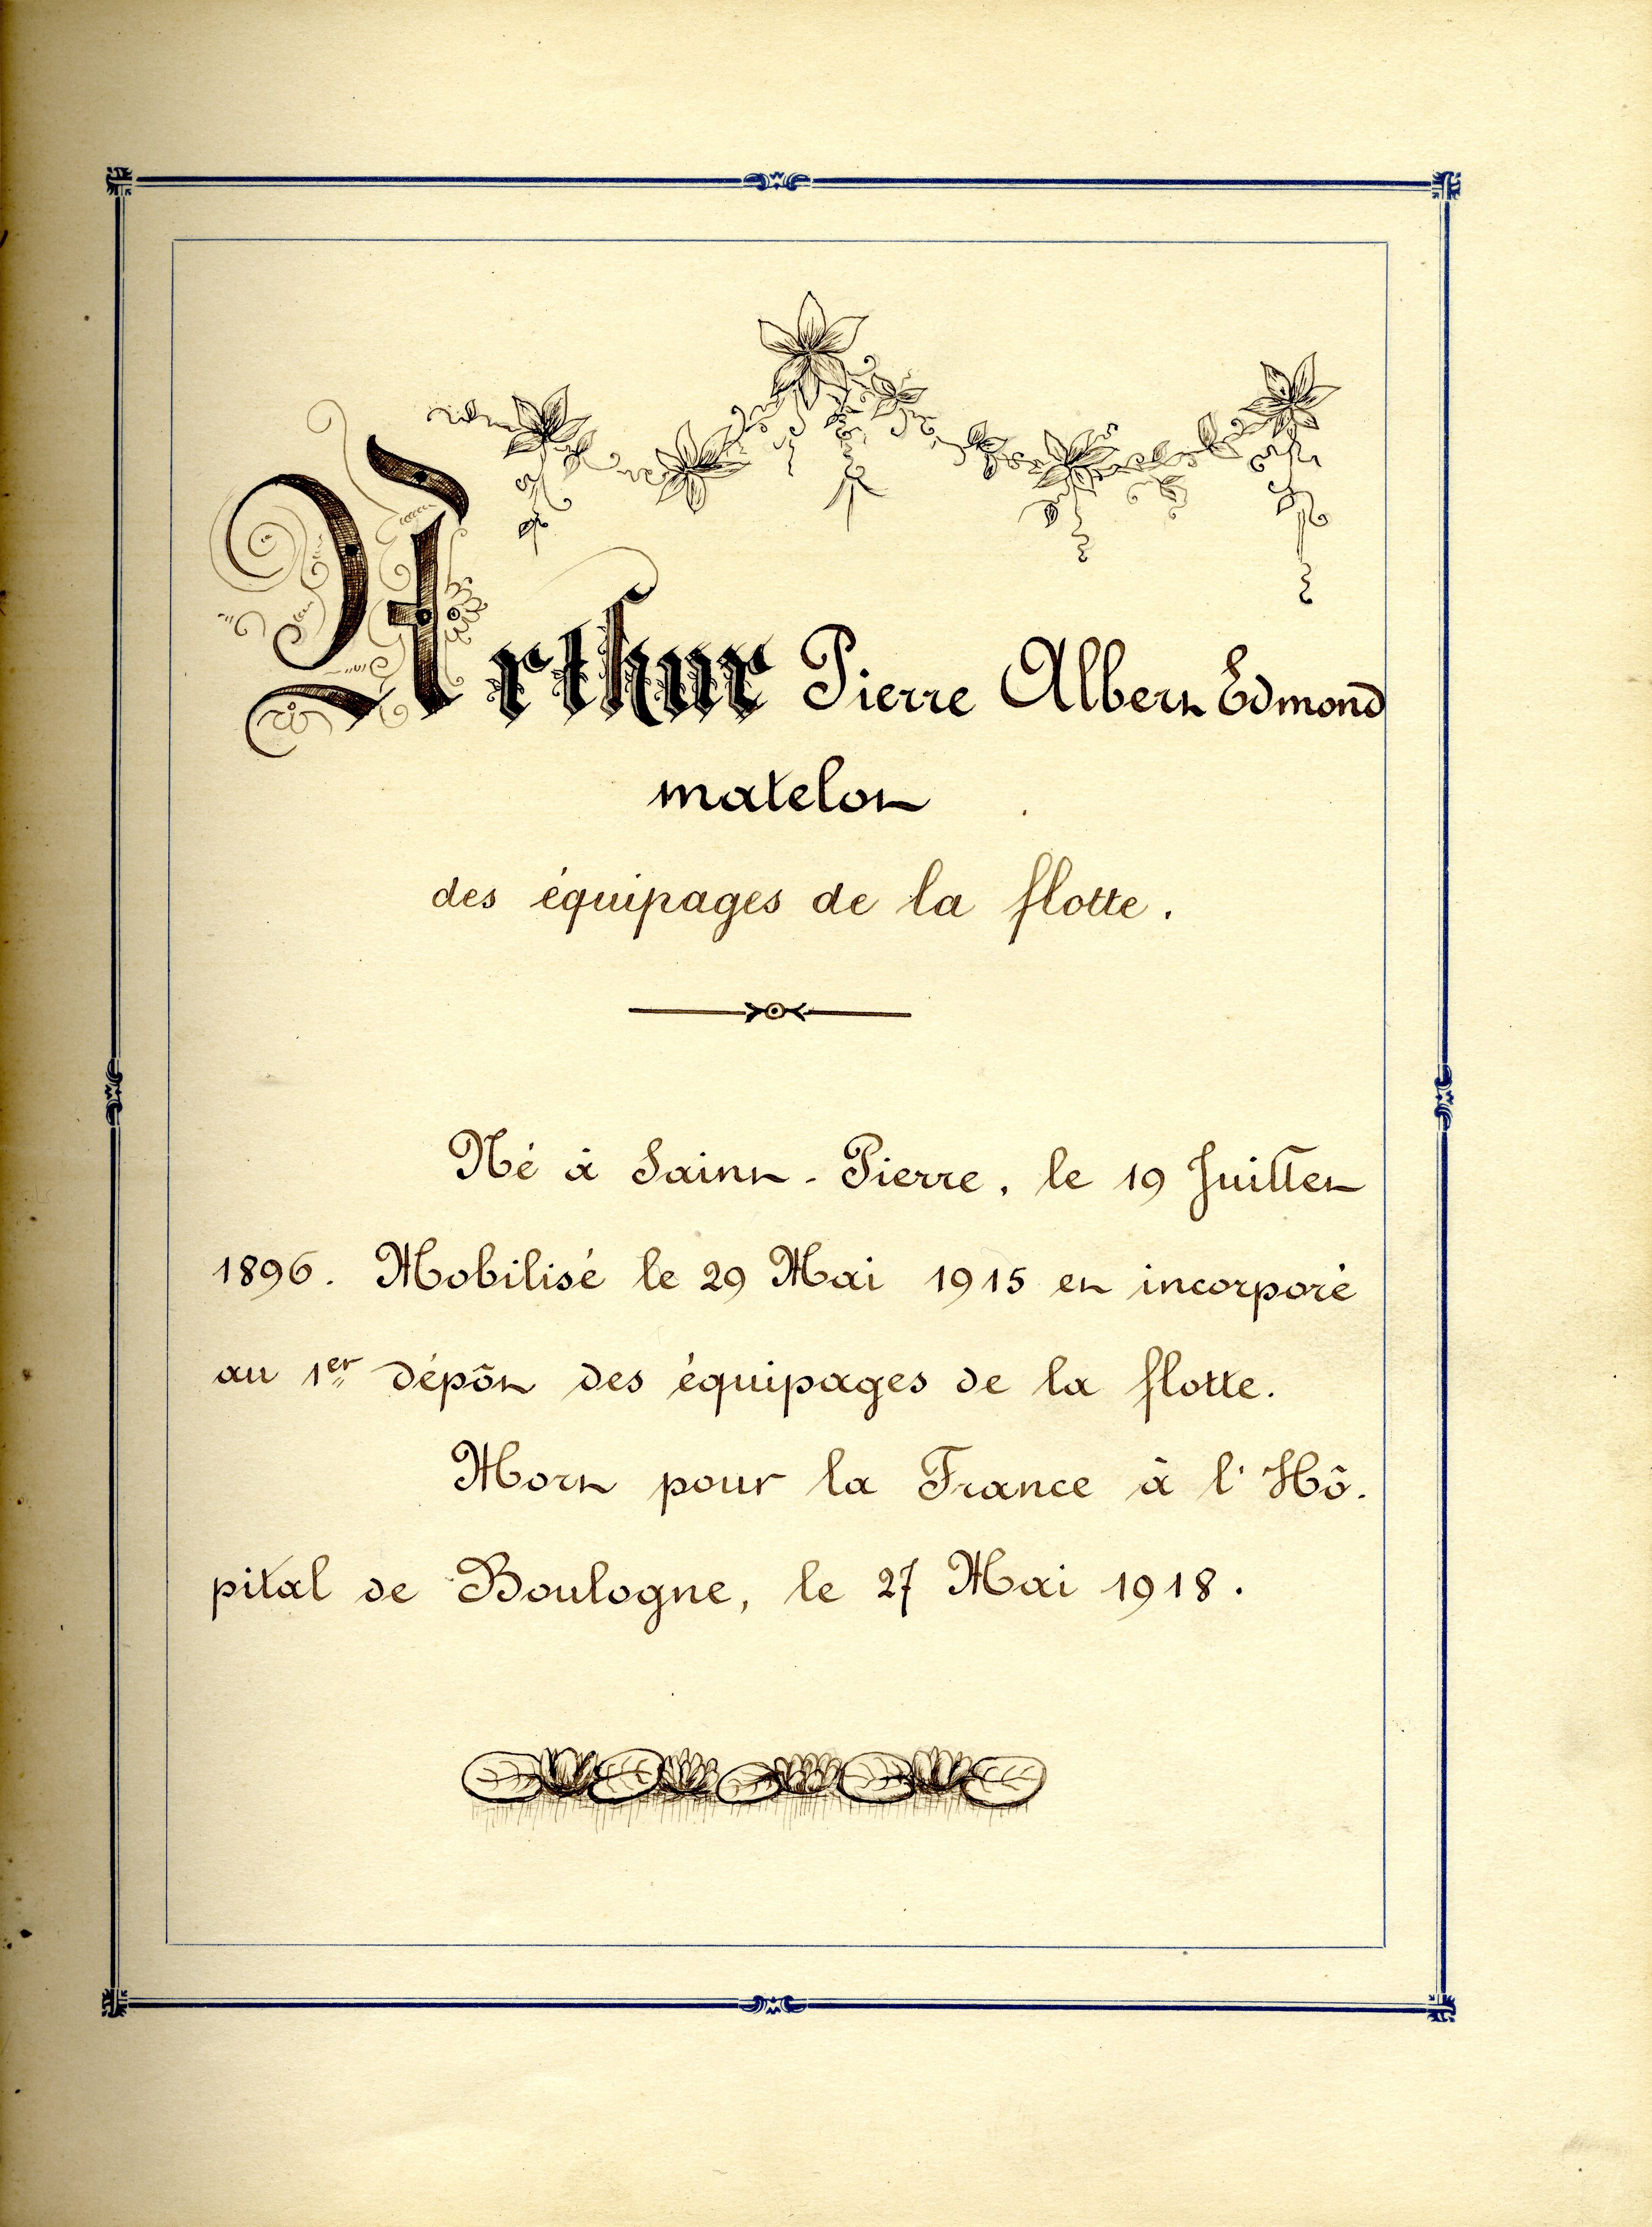 Arthur Pierre Albert Edmond
matelot
des équipages de la flotte.
Né à Saint-Pierre, le 19 Juillet
1896. Mobilisé le 29 Mai 1915 et incorporé
au 1er dépôt des équipages de la flotte.
Mort pour la France à l'Hô-
pital de Boulogne, le 27 Mai 1918.